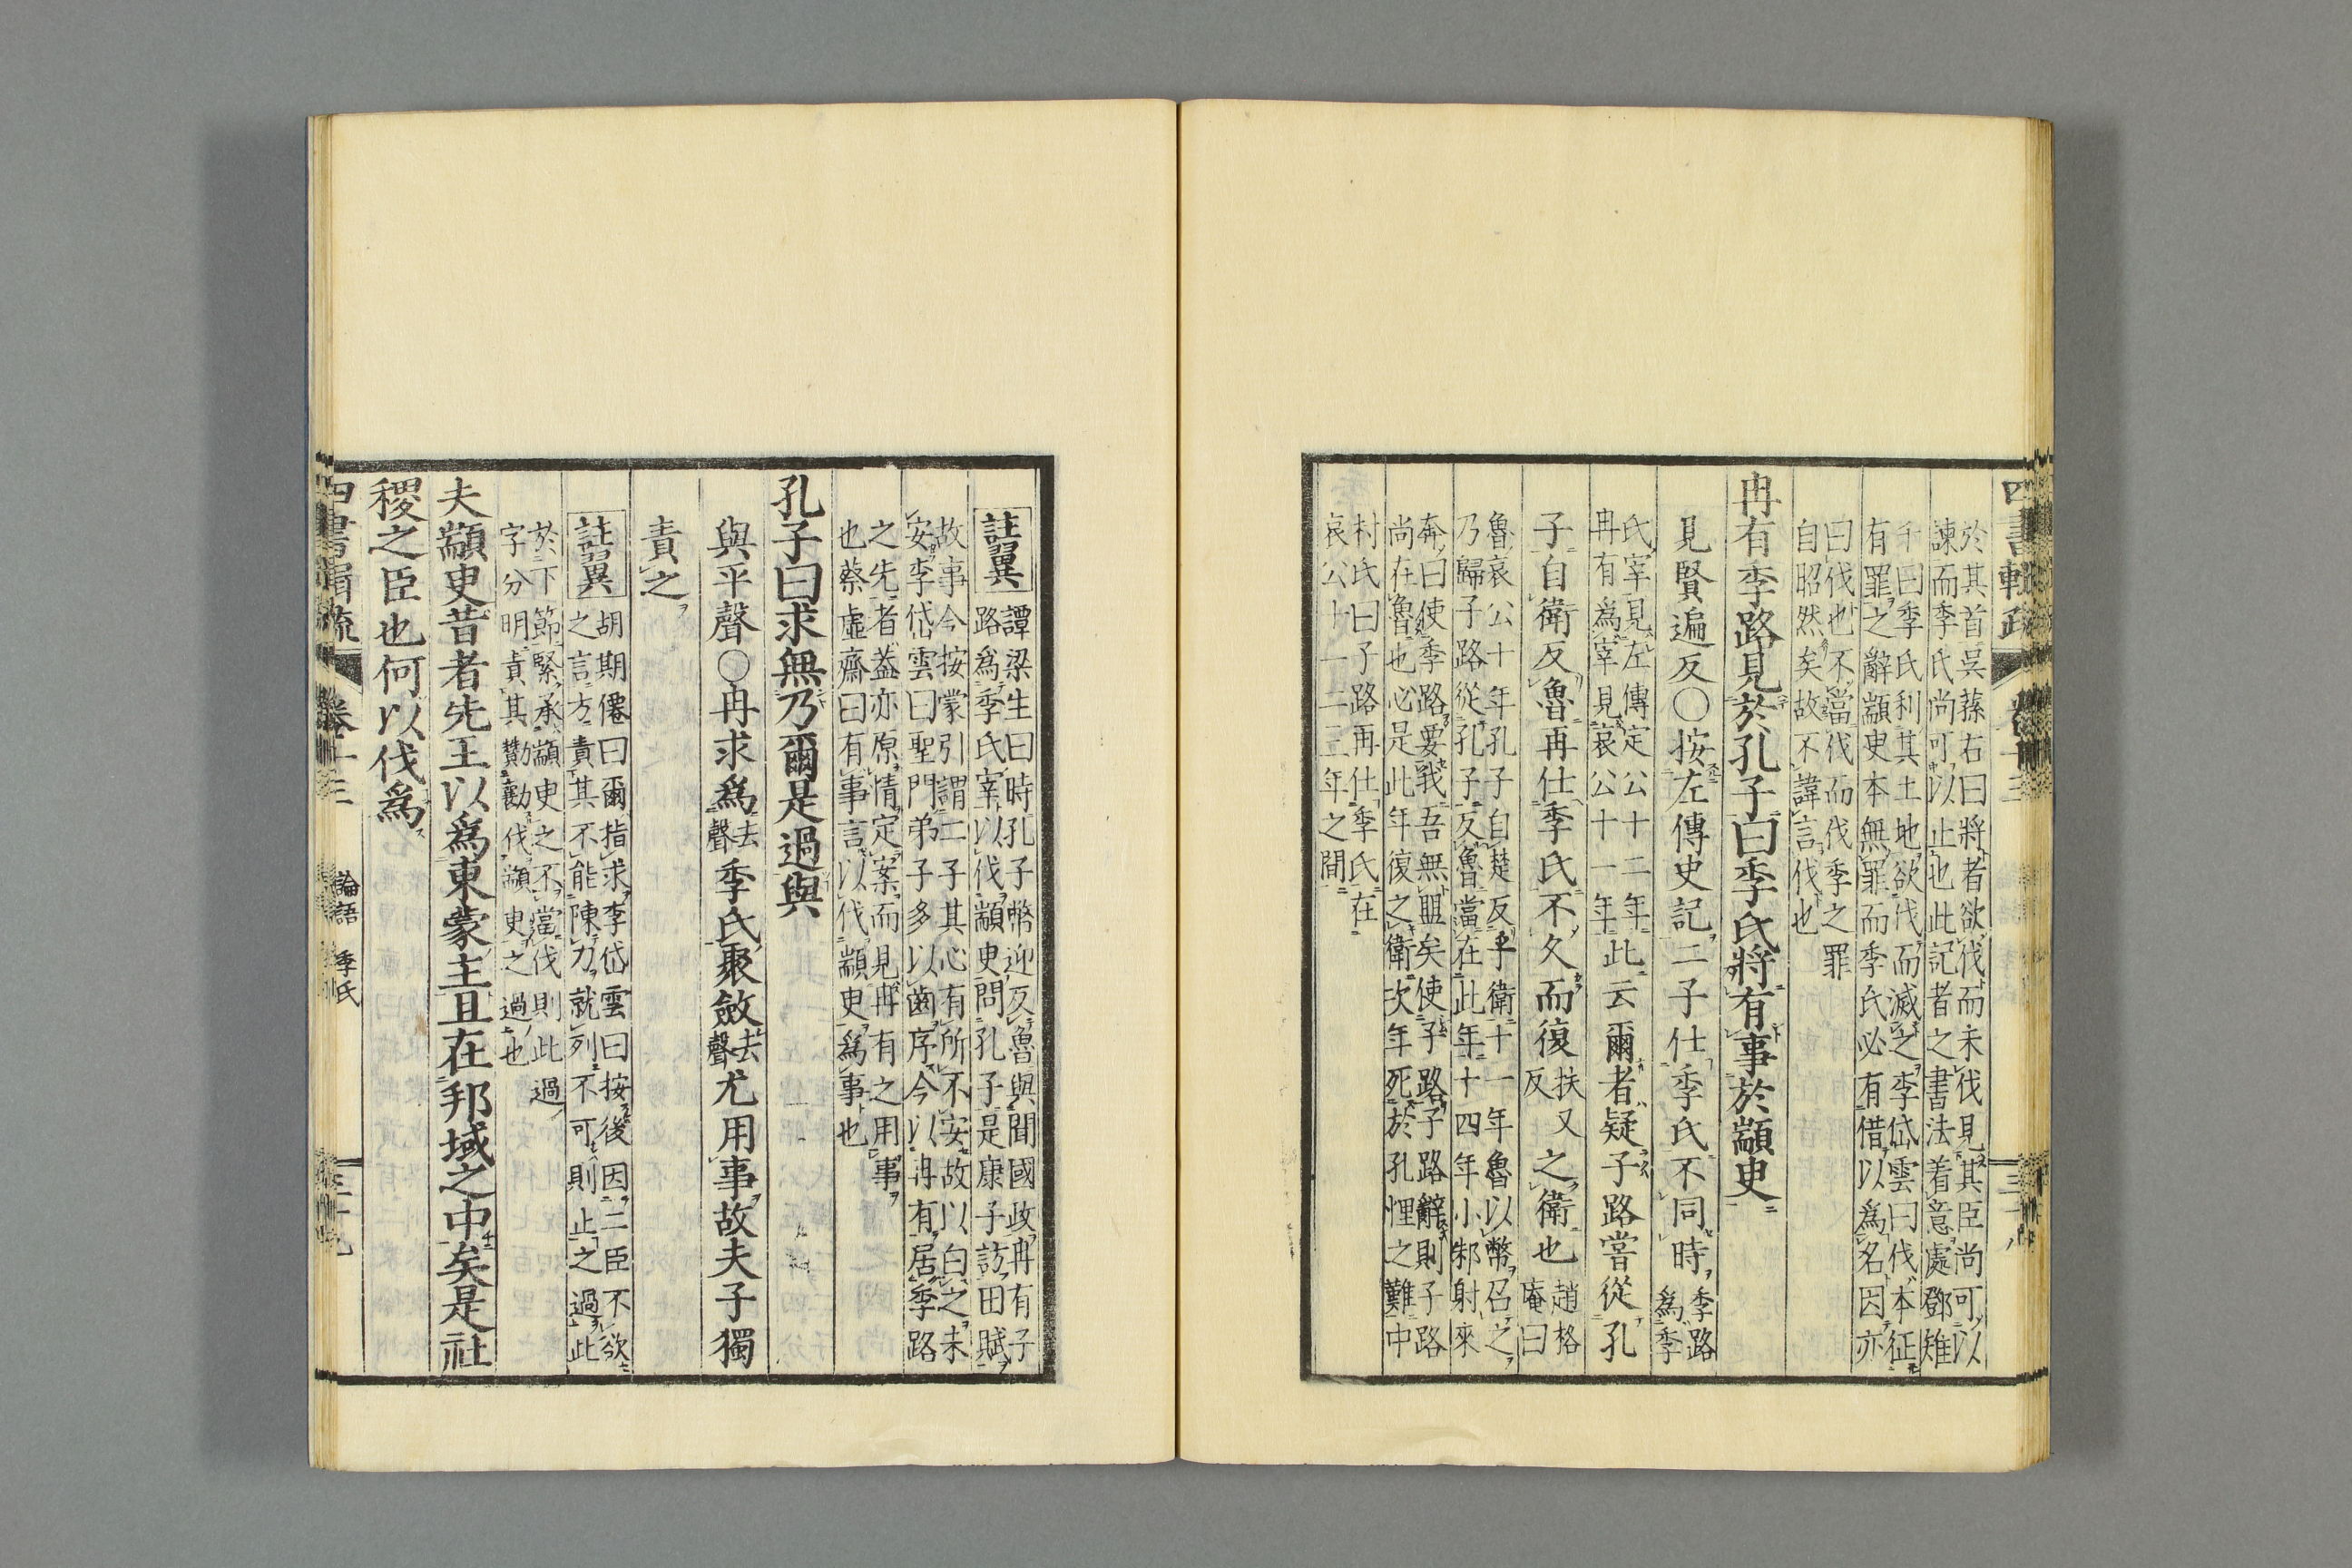 四書輯疏
於其首吳蓀右曰將者欲伐而未伐見其臣尚可以
諫而季氏尚可以止也此記者之書法着意處鄧雉
千曰季氏利其土地欲伐而滅之李岱雲曰伐本征
有罪之辭顓臾本無罪而季氏必有借以爲名因亦
曰伐也不當伐而伐季之罪
自昭然矣故不諱言伐也
冉有季路見於孔子曰季氏將有事於顓臾
見賢遍反○按左傳史記二子仕季氏不同時季路爲季
氏宰見左傳定公十二年
冉有爲宰見哀公十一年此云爾者疑子路嘗從孔
子自衛反魯再仕季氏不久而復扶又反之衛也趙格庵曰
魯哀公十年孔子自楚反乎衛十一年魯以幣召之
乃歸子路從孔子反魯當在此年十四年小邾射來
奔曰使季路要我吾無盟矣使子路子路辭則子路
尚在魯也必是此年復之衛次年死於孔悝之難中
村氏曰子路再仕季氏在
哀公十一二三年之間
註翼
譚梁生曰時孔子幣迎反魯與聞國政冉有子
路爲季氏宰以伐顓臾問孔子是康子訪田賦
故事今按蒙引謂二子其心有所不安故以白之未
安李岱雲曰聖門弟子多以齒序今以冉有居季路
之先者蓋亦原情定案而見冉有之用事
也蔡虛齋曰有事言以伐顓臾爲事也
孔子曰求無乃爾是過與
與平聲○冉求爲去聲季氏聚斂去聲尤用事故夫子獨
責之
註翼
胡期僊曰爾指求李岱雲曰按後因二臣不欲
之言方責其不能陳力就列不可則止之過此
於下節緊承顓臾之不當伐則此過
字分明責其贊勸伐顓臾之過也
夫顓臾昔者先王以爲東蒙主且在邦域之中矣是社
稷之臣也何以伐爲
四書輯疏 卷十三 論語 季氏